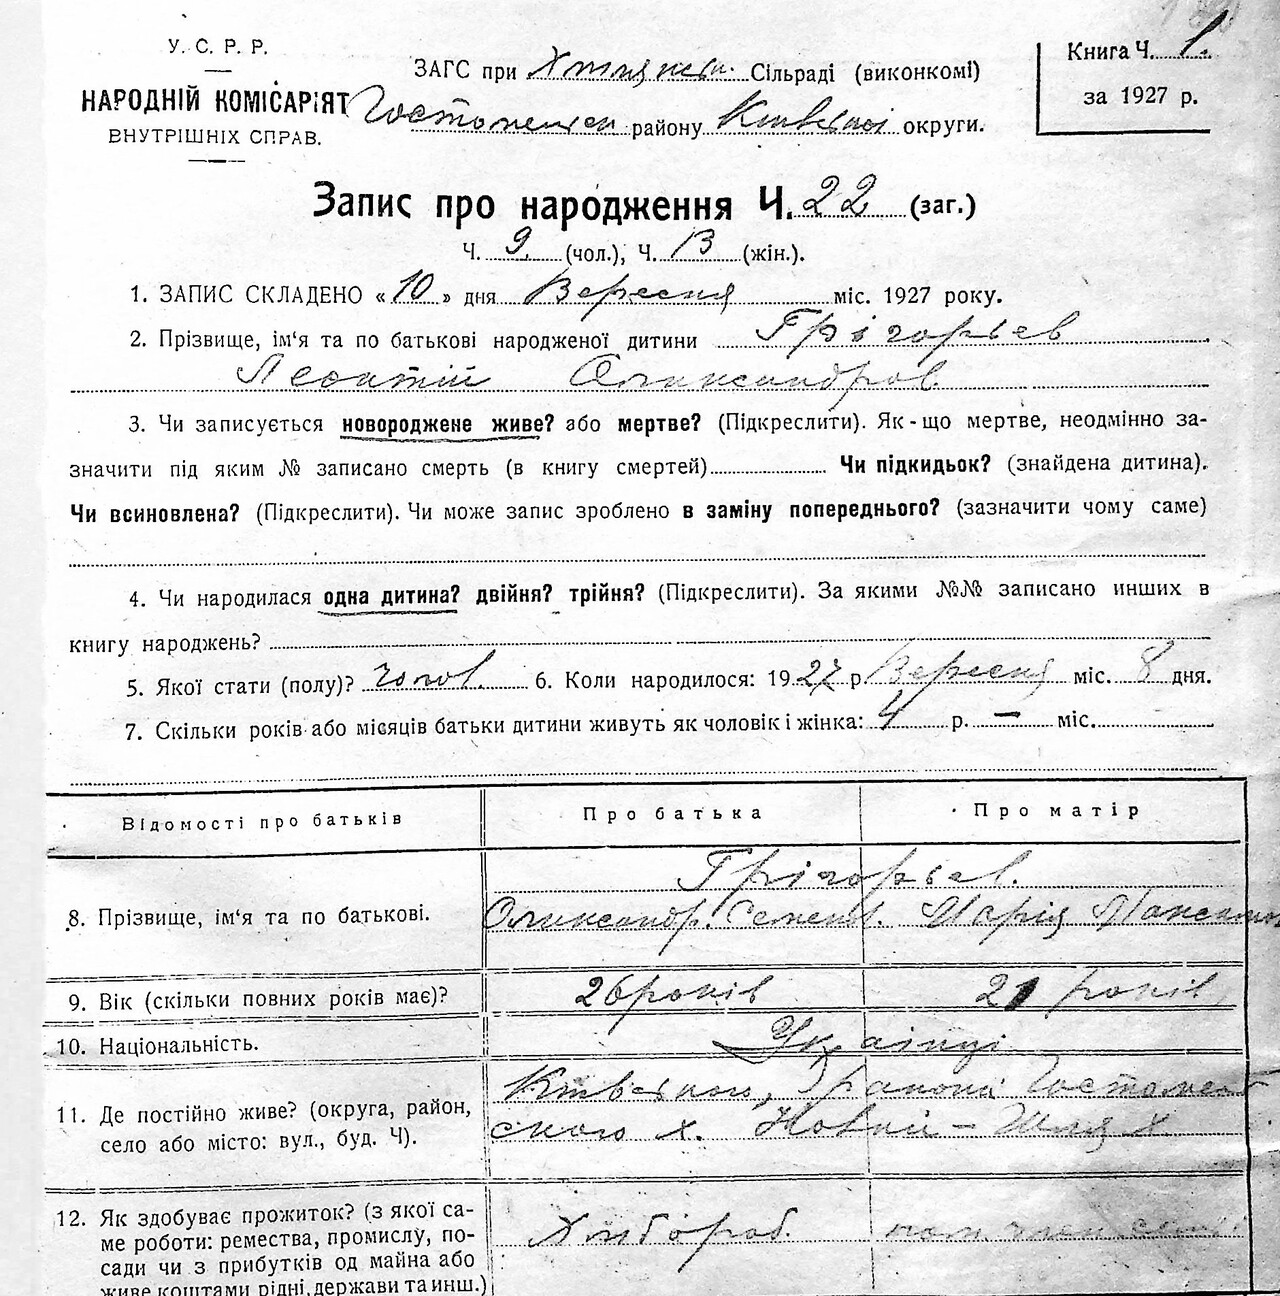 У. С. Р. Р.
НАРОДНІЙ КОМІСАРІЯТ
ВНУТРІШНІХ СПРАВ.
ЗАГС при Сільраді (виконкомі)
району Київської округи.
Книга Ч. 1.
за 1927 р.
Запис про народження Ч. 22 (заг.)
Ч. 9 (чол.), Ч. 13 (жін.).
1. ЗАПИС СКЛАДЕНО «10» дня Вересня міс. 1927 року.
2. Прізвище, ім‘я та по батькові народженої дитини Грігорьєв
Леонтій Олександров.
3. Чи записується новороджене живе? або мертве? (Підкреслити). Як-що мертве, неодмінно за-
значити під яким № записано смерть (в книгу смертей) Чи підкидьок? (знайдена дитина).
Чи всиновлена? (Підкреслити). Чи може запис зроблено в заміну попереднього? (зазначити чому саме)
4. Чи народилася одна дитина? двійня? трійня? (Підкреслити). За якими №№ записано инших в
книгу народжень?
5. Якої стати (полу)? чолов. 6. Коли народилося: 1927 р. Вересня міс. 8 дня.
7. Скільки років або місяців батьки дитини живуть як чоловік і жінка: 4 р. — міс.
Відомості про батьків
Про батька
Про матір
8. Прізвище, ім‘я та по батькові.
Грігорьєв.
Олександр. Семен. Марія
9. Вік (скільки повних років має)?
26 років
21 років
10. Національність.
Українці
11. Де постійно живе? (округа, район,
село або місто: вул., буд. Ч).
Київської, району Гостомель-
ского х. Новий-Шлях
12. Як здобуває прожиток? (з якої са-
ме роботи: ремества, промислу, по-
сади чи з прибутків од майна або
живе коштами рідні, держави та инш.)
Хлібороб.